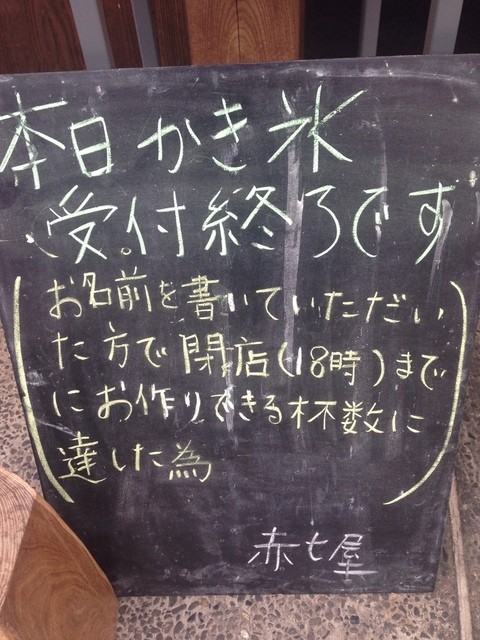 本日かき氷
受付終了です
(お名前を書いていただい
た方で閉店(18時)まで
にお作りできる杯数に
達した為)
赤七屋